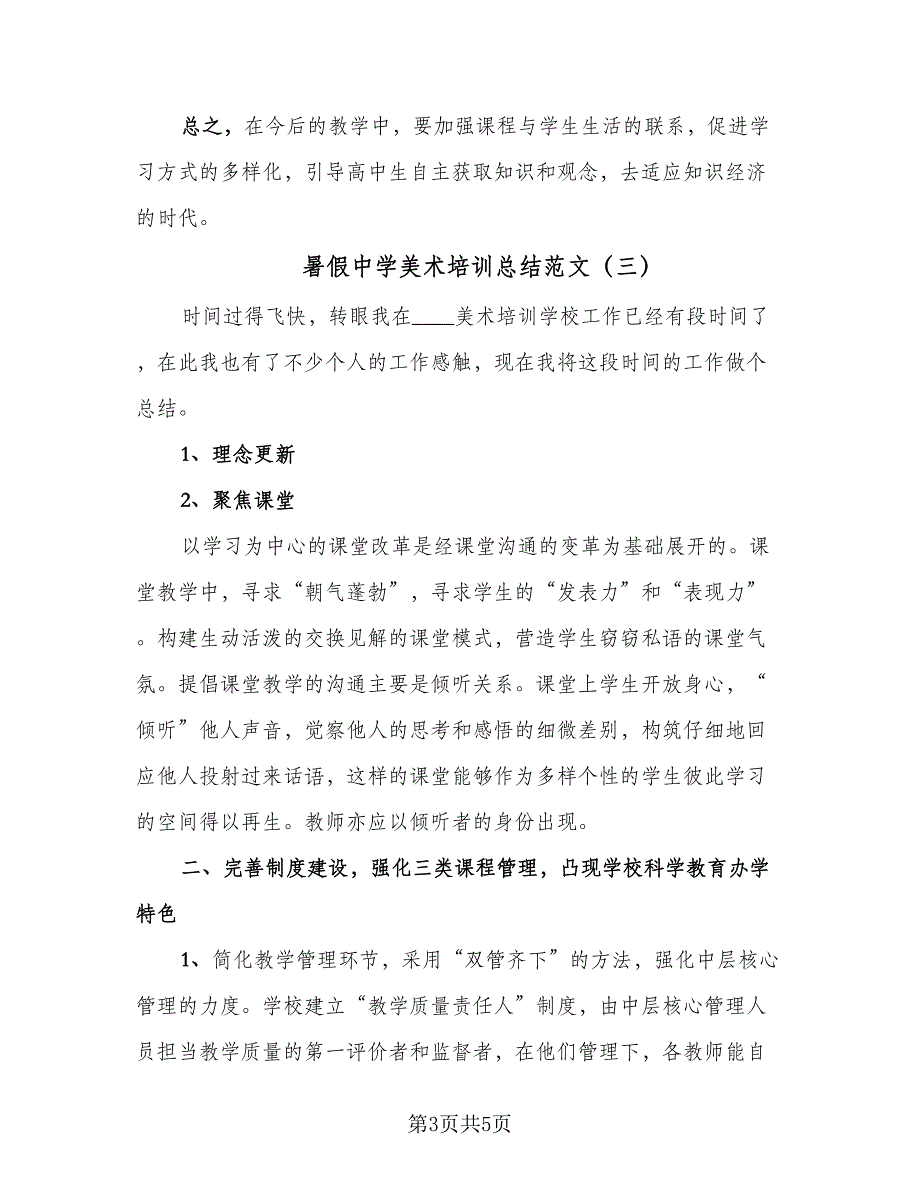 总之，在今后的教学中，要加强课程与学生生活的联系，促进学
习方式的多样化，引导高中生自主获取知识和观念，去适应知识经济
的时代。
暑假中学美术培训总结范文（三）
时间过得飞快，转眼我在____美术培训学校工作已经有段时间了
，在此我也有了不少个人的工作感触，现在我将这段时间的工作做个
总结。
1、理念更新
2、聚焦课堂
以学习为中心的课堂改革是经课堂沟通的变革为基础展开的。课
堂教学中，寻求“朝气蓬勃”，寻求学生的“发表力”和“表现力”
。构建生动活泼的交换见解的课堂模式，营造学生窃窃私语的课堂气
氛。提倡课堂教学的沟通主要是倾听关系。课堂上学生开放身心，“
倾听”他人声音，觉察他人的思考和感悟的细微差别，构筑仔细地回
应他人投射过来话语，这样的课堂能够作为多样个性的学生彼此学习
的空间得以再生。教师亦应以倾听者的身份出现。
二、完善制度建设，强化三类课程管理，凸现学校科学教育办学
特色
1、简化教学管理环节，采用“双管齐下”的方法，强化中层核心
管理的力度。学校建立“教学质量责任人”制度，由中层核心管理人
员担当教学质量的第一评价者和监督者，在他们管理下，各教师能自
第3页共5页